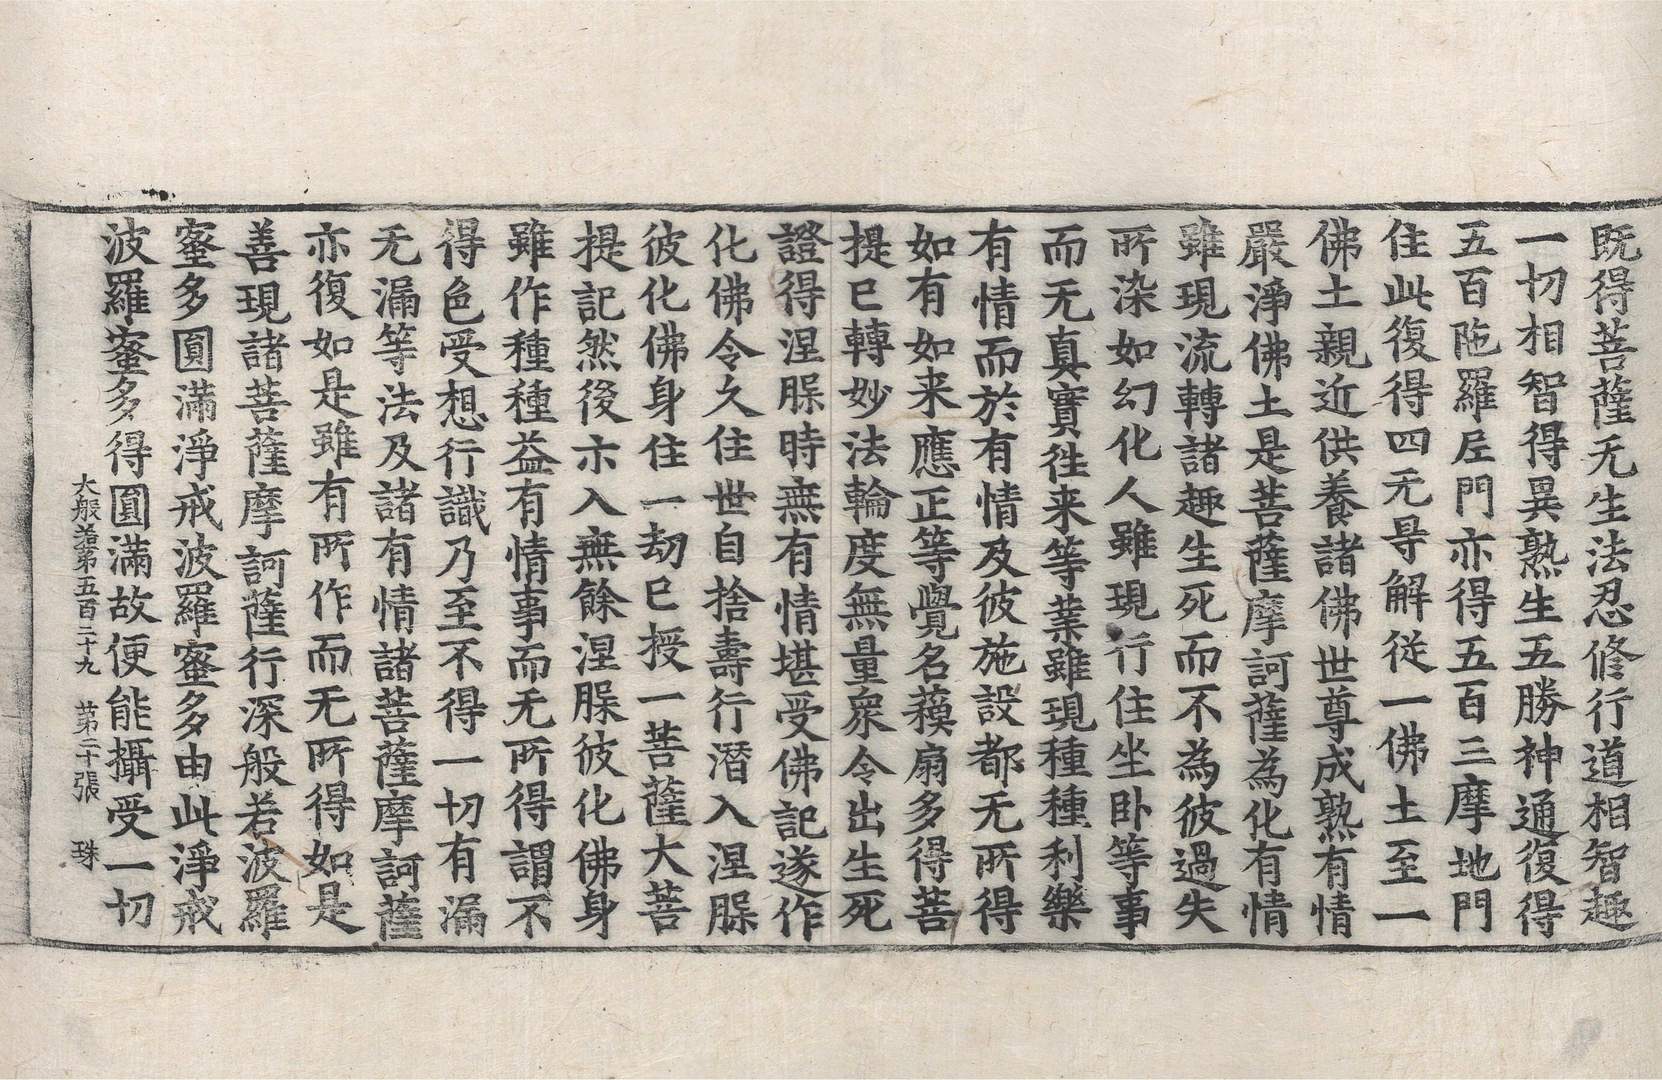 既得菩薩无生法忍修行道相智趣
一切相智得異熟生五勝神通復得
五百陁羅尼門亦得五百三摩地門
住此復得四无㝵解從一佛土至一
佛土親近供養諸佛世尊成熟有情
嚴淨佛土是菩薩摩訶薩為化有情
雖現流轉諸趣生死而不為彼過失
所染如幻化人雖現行住坐卧等事
而无真實徃来等業雖現種種利樂
有情而於有情及彼施設都无所得
如有如来應正等覺名蘓扇多得菩
提已轉妙法輪度無量衆令出生死
證得涅脲時無有情堪受佛記遂作
化佛令久住世自捨壽行潜入涅脲
彼化佛身住一劫已授一菩薩大菩
提記然後亦入無餘涅脲彼化佛身
雖作種種益有情事而无所得謂不
得色受想行識乃至不得一切有漏
无漏等法及諸有情諸菩薩摩訶薩
亦復如是雖有所作而无所得如是
善現諸菩薩摩訶薩行深般若波羅
蜜多圓滿淨戒波羅蜜多由此淨戒
波羅蜜多得圓滿故便能攝受一切
大般若第五百二十九 苐二十張 珠